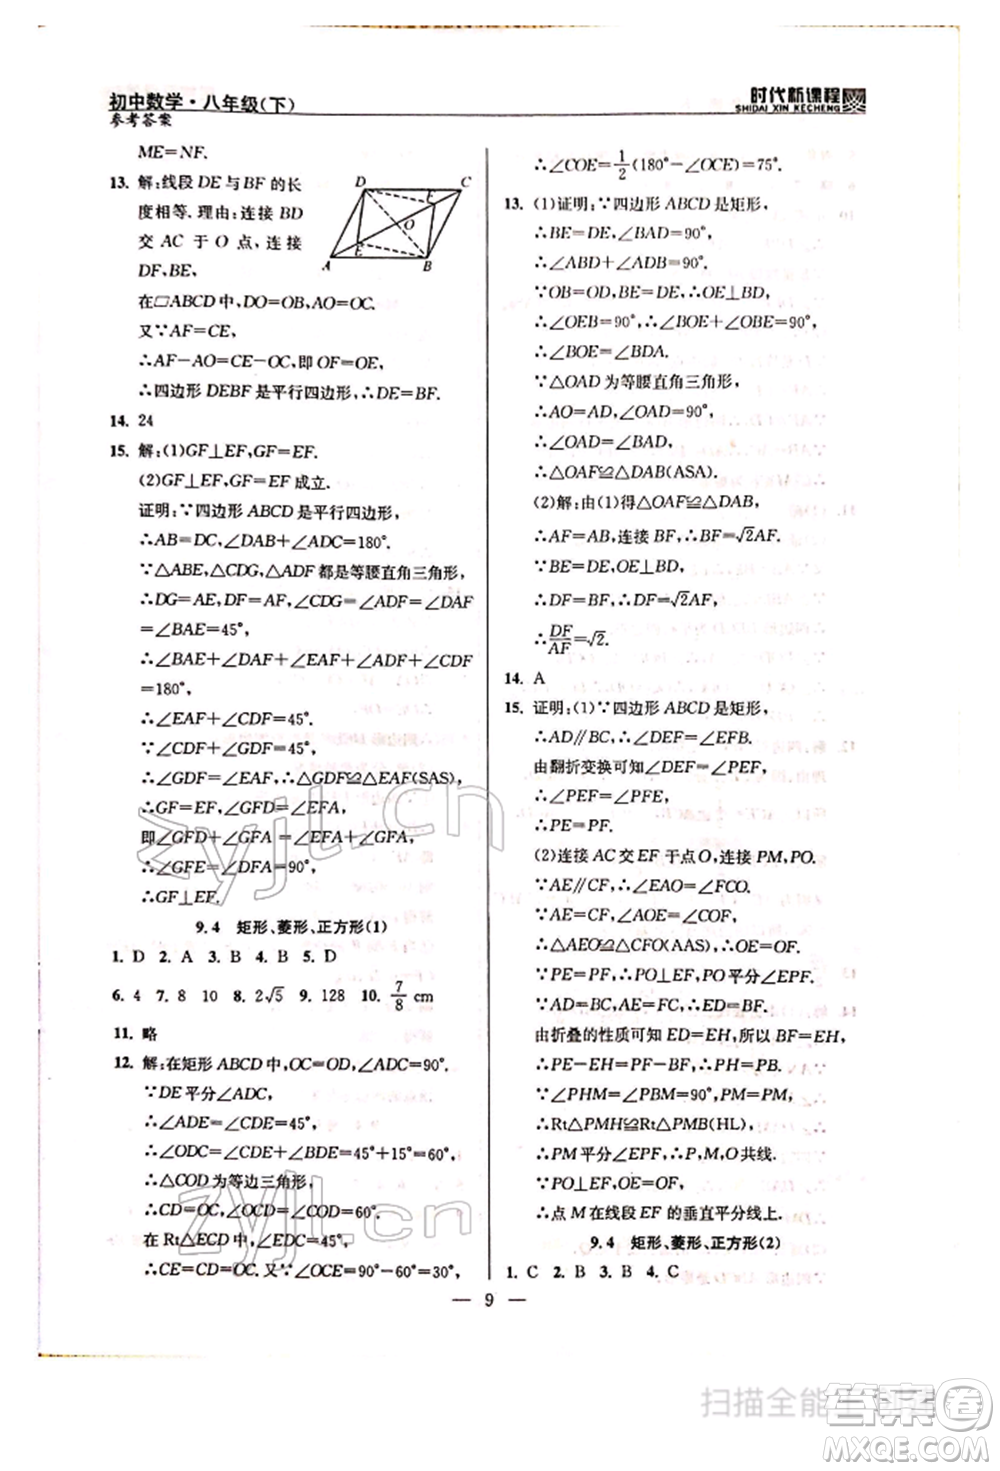 初中数学·八年级(下)
参考答案
时代新课程
SHIDAI XIN KECHENG
ME=NF.
13. 解:线段 DE 与 BF 的长
度相等. 理由:连接 BD
交 AC 于 O 点, 连接
DF,BE,
在▱ABCD 中,DO=OB,AO=OC.
又∵AF=CE,
∴AF-AO=CE-OC,即 OF=OE,
∴四边形 DEBF 是平行四边形,∴DE=BF.
D
C
F
O
E
A
B
14. 24
15. 解:(1)GF⊥EF,GF=EF.
(2)GF⊥EF,FG=EF 成立.
证明:∵四边形 ABCD 是平行四边形,
∴AB=DC,∠DAB+∠ADC=180°.
∵△ABE,△CDG,△ADF 都是等腰直角三角形,
∴DG=AE,DF=AF,∠CDG=∠ADF=∠DAF
=∠BAE=45°,
∴∠BAE+∠DAF+∠EAF+∠ADF+∠CDF
=180°,
∴∠EAF+∠CDF=45°.
∴∠GDF=∠EAF,∴△GDF≌△EAF(SAS),
∴GF=EF,∠GFD=∠EFA,
即∠GFD+∠GFA=∠EFA+∠GFA,
∴∠GFE=∠DFA=90°,
∴GF⊥EF.
9.4 矩形、菱形、正方形(1)
1. D 2. A 3. B 4. B 5. D
6. 4 7. 8 10 8. 2√5 9. 128 10. 7/8 cm
11. 略
12. 解:在矩形 ABCD 中,OC=OD,∠ADC=90°.
∵DE 平分∠ADC,
∴∠ADE=∠CDE=45°,
∴∠ODC=∠BDE+∠CDE=45°+15°=60°,
∴△COD 为等边三角形,
∴CD=OD=OC,∠OCD=∠COD=60°.
在 Rt△ECD 中,∠CED=∠CDE=45°,
∴CE=CD=OC. 又∵∠OCE=90°-60°=30°,
∴∠COE=1/2(180°-∠OCE)=75°.
13. (1)证明:∵四边形 ABCD 是矩形,
∴BE=DE,∠BAD=90°.
∴∠ABD+∠ADB=90°.
∵OB=OD,BE=DE,∴OE⊥BD,
∴∠OEB=90°,∴∠BOE+∠OBE=90°,
∴∠BOE=∠BDA.
∵△OAD 为等腰直角三角形,
∴AO=AD,∠OAD=90°,
∴∠OAD=∠BAD,
∴△OAF≌△DAB(ASA).
(2)解:由(1)得△OAF≌△DAB,
∴AF=AB,连接 BF,∴BF=√2AF.
∵BE=DE,OE⊥BD,
∴DF=BF,∴DF=√2AF,
∴DF/AF=√2.
14. A
15. 证明:(1)∵四边形 ABCD 是矩形,
∴AD∥BC,∴∠DEF=∠EFB.
由翻折变换可知∠DEF=∠PEF,
∴∠PEF=∠PFE,
∴PE=PF.
(2)连接 AC 交 EF 于点 O,连接 PM,PO.
∵AE∥CF,∴∠EAO=∠FCO.
∵AE=CF,∠AOE=∠COF,
∴△AEO≌△CFO(AAS),∴OE=OF.
∵PE=PF,∴PO⊥EF,PO 平分∠EPF.
∵AD=BC,AE=FC,∴ED=BF,
由折叠的性质可知 ED=EH,所以 BF=EH,
∴PE-EH=PF-BF,∴PH=PB.
∵∠PHM=∠PBM=90°,PM=PM,
∴Rt△PMH≌Rt△PMB(HL),
∴PM 平分∠EPF,∴P,M,O 共线.
∵PO⊥EF,OE=OF,
∴点 M 在线段 EF 的垂直平分线上.
9.4 矩形、菱形、正方形(2)
1. C 2. B 3. B 4. C
— 9 —
zyjl.cn
zyjl.cn
答案圈
MXQE.COM